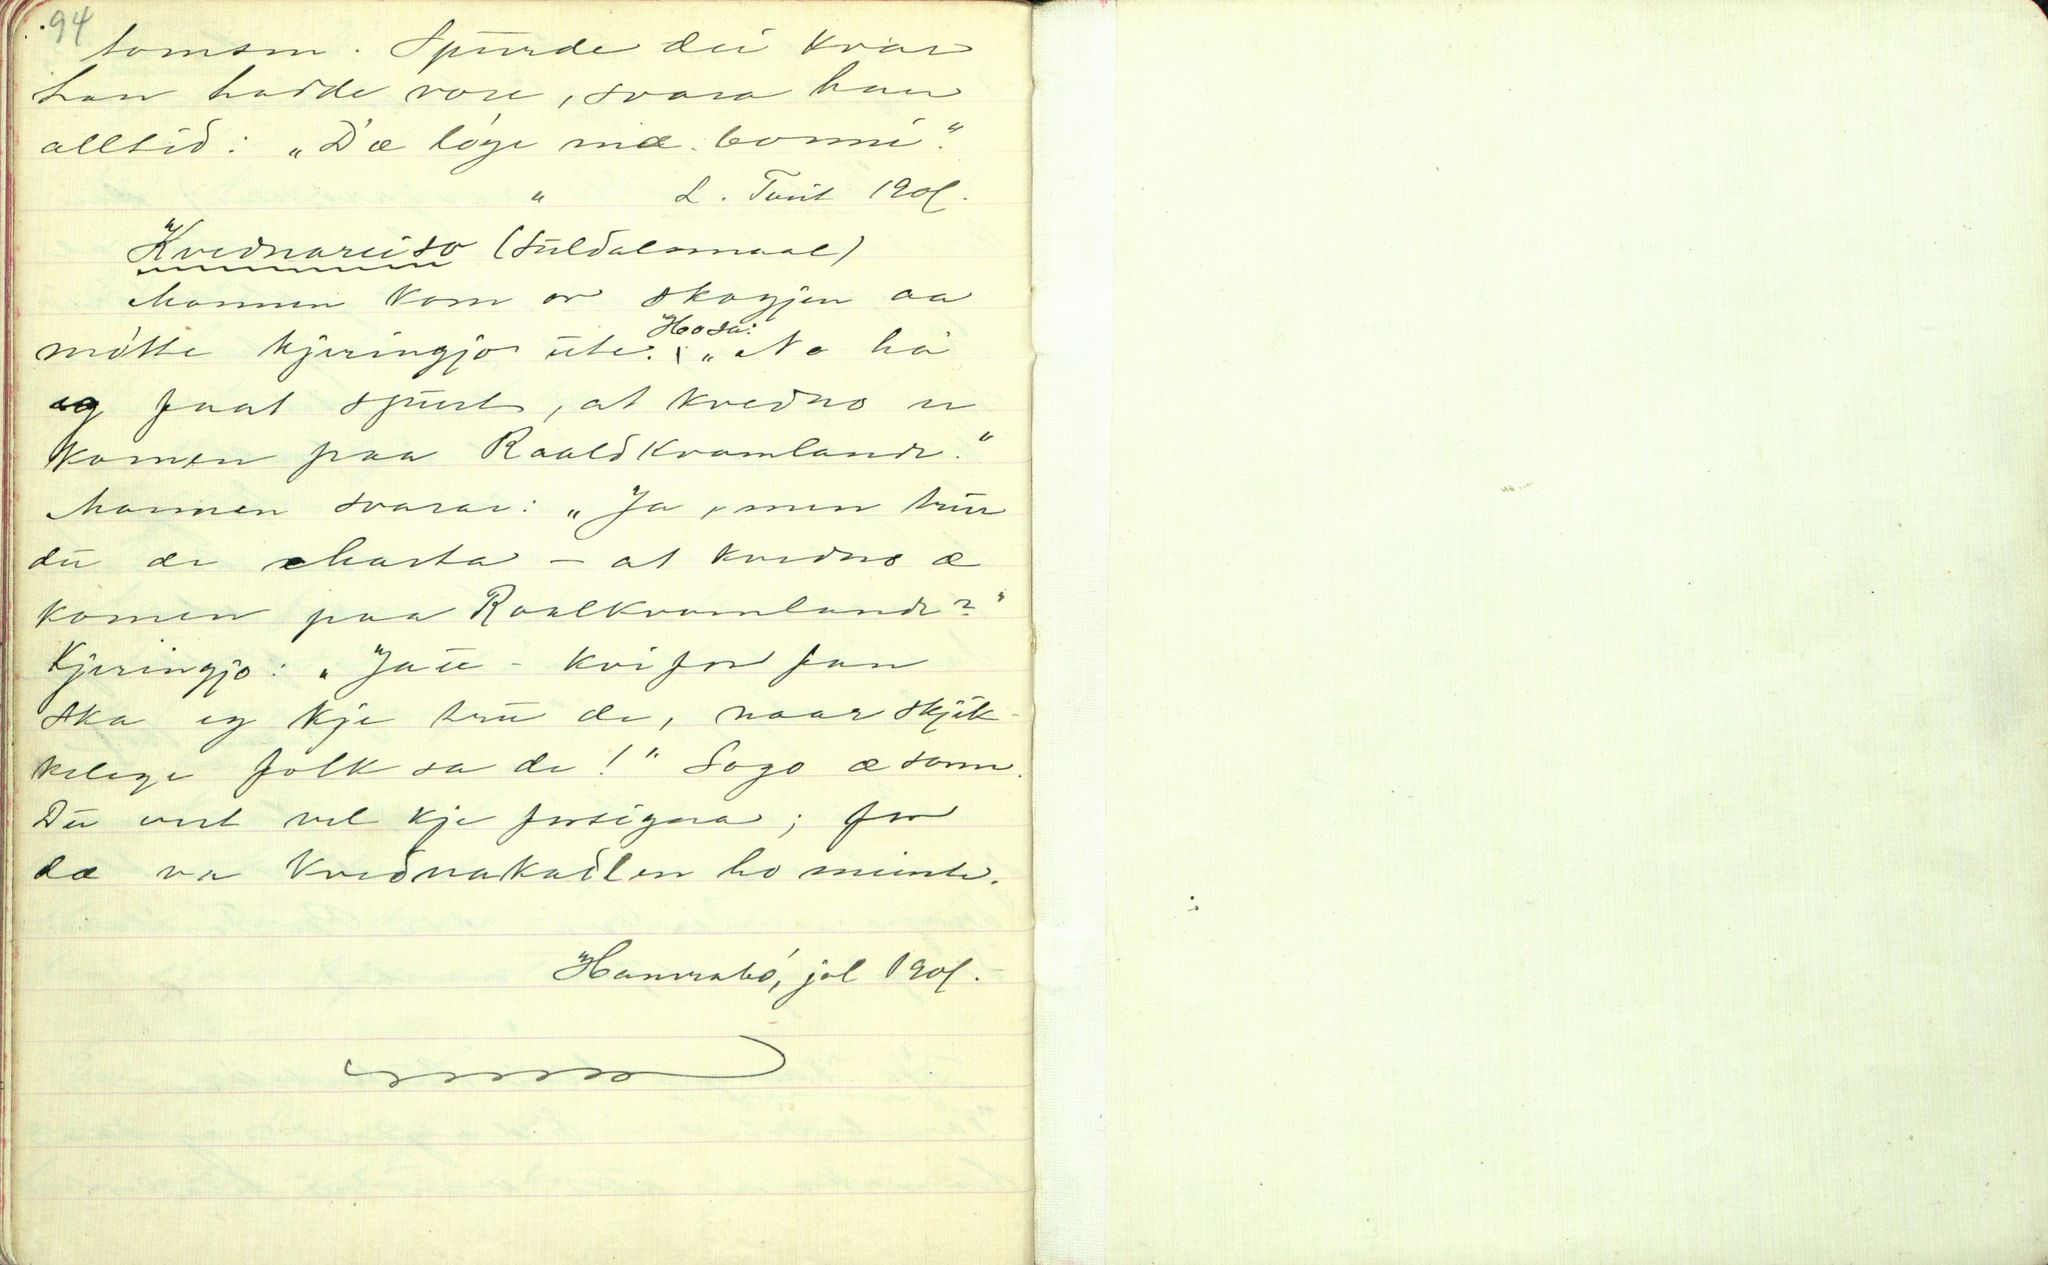 94
tomsm. Spurde dei kvar
han hadde vore, svara han
alltid: „Dæ løge mæ bonni."
" L. Tveit 1901.
Kvednareiso (Suldalsmaal)
Mannen kom or skogjen aa
møtte kjeringjo ute. Ho sa: „No hå
eg faat spurt, at kvedno er
komen paa Raaldkvamlande."
Mannen svarar: „Ja, men trur
du de Marta – at kvedno æ
komen paa Raalkvamlande?"
Kjeringjo: „Jau – kvifor fan
ska eg kje tru de, naar skjik-
kelege folk sa de!" Sogo æ sonn.
Du vert vel kje forsigna; for
dæ va kvednakadlen ho meinte.
Hamrabø, jol 1901.